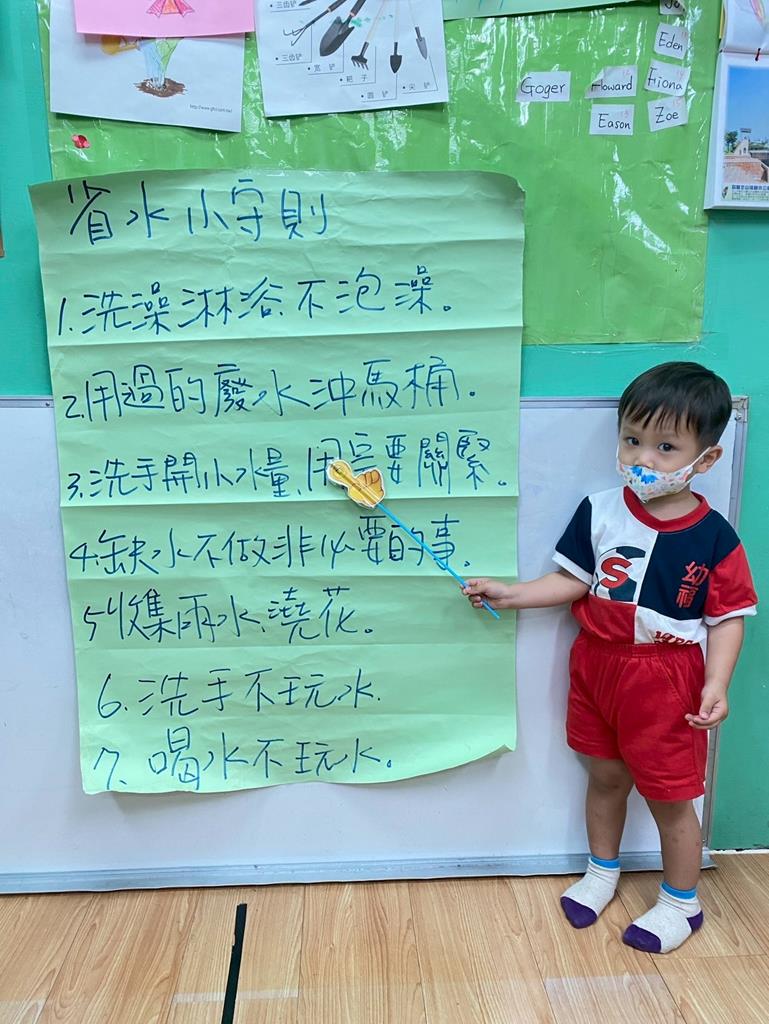 三齿铲
三齿铲
宽 铲
耙 子
圆 铲
尖 铲
Goger
Howard
Eden
Fiona
Eason
Zoe
省水小守則
1.洗澡淋浴不泡澡。
2.用過的廢水沖馬桶。
3.洗手開小水量,用完要關緊。
4.缺水不做非必要的事。
5收集雨水,澆花。
6.洗手不玩水.
7.喝水不玩水。
S
幼福